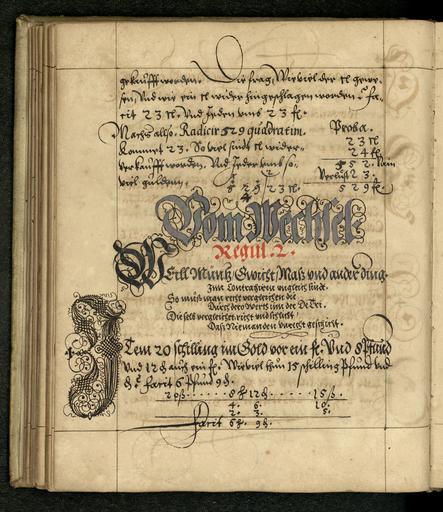 gekaufft worden. Die frag, Wieviel der tl gewe-
sen, Und wie ein tl wider hingeschlagen worden? fa-
cit 23 tl. Und Jeden umb 23 fl.
Machs allso. Radicir 529 quadratim. Proba.
Kommet 23. So viel sindt tl wider- 23 tl
verkaufft worden. Und Jeder umb so- 
viel gulden. Verlust 23.
5 29 23 tl. 529 fl.
Vom Wechsel.
Regul. 2.
Weil Müntz, Gwicht, Maß und ander ding
Inn Contrahirn ungleich sindt.
So mus man recht vergleichen die
Durch dero Werth inn der De Tri.
Die selb vergleichet recht und schlicht,
Das Niemanden Unrecht geschicht.
Item 20 schilling im Gold vor ein fl. Und 8 Pfund
und 12 h auch ein fl. Wieviel thun 15 schilling Pfund und
h? facit 6 Pfund 9 h.
20 ß 8 tl 12 h 15 ß.
4. 6. 10.
2. 3. 5.
facit 6 tl. 9 h.